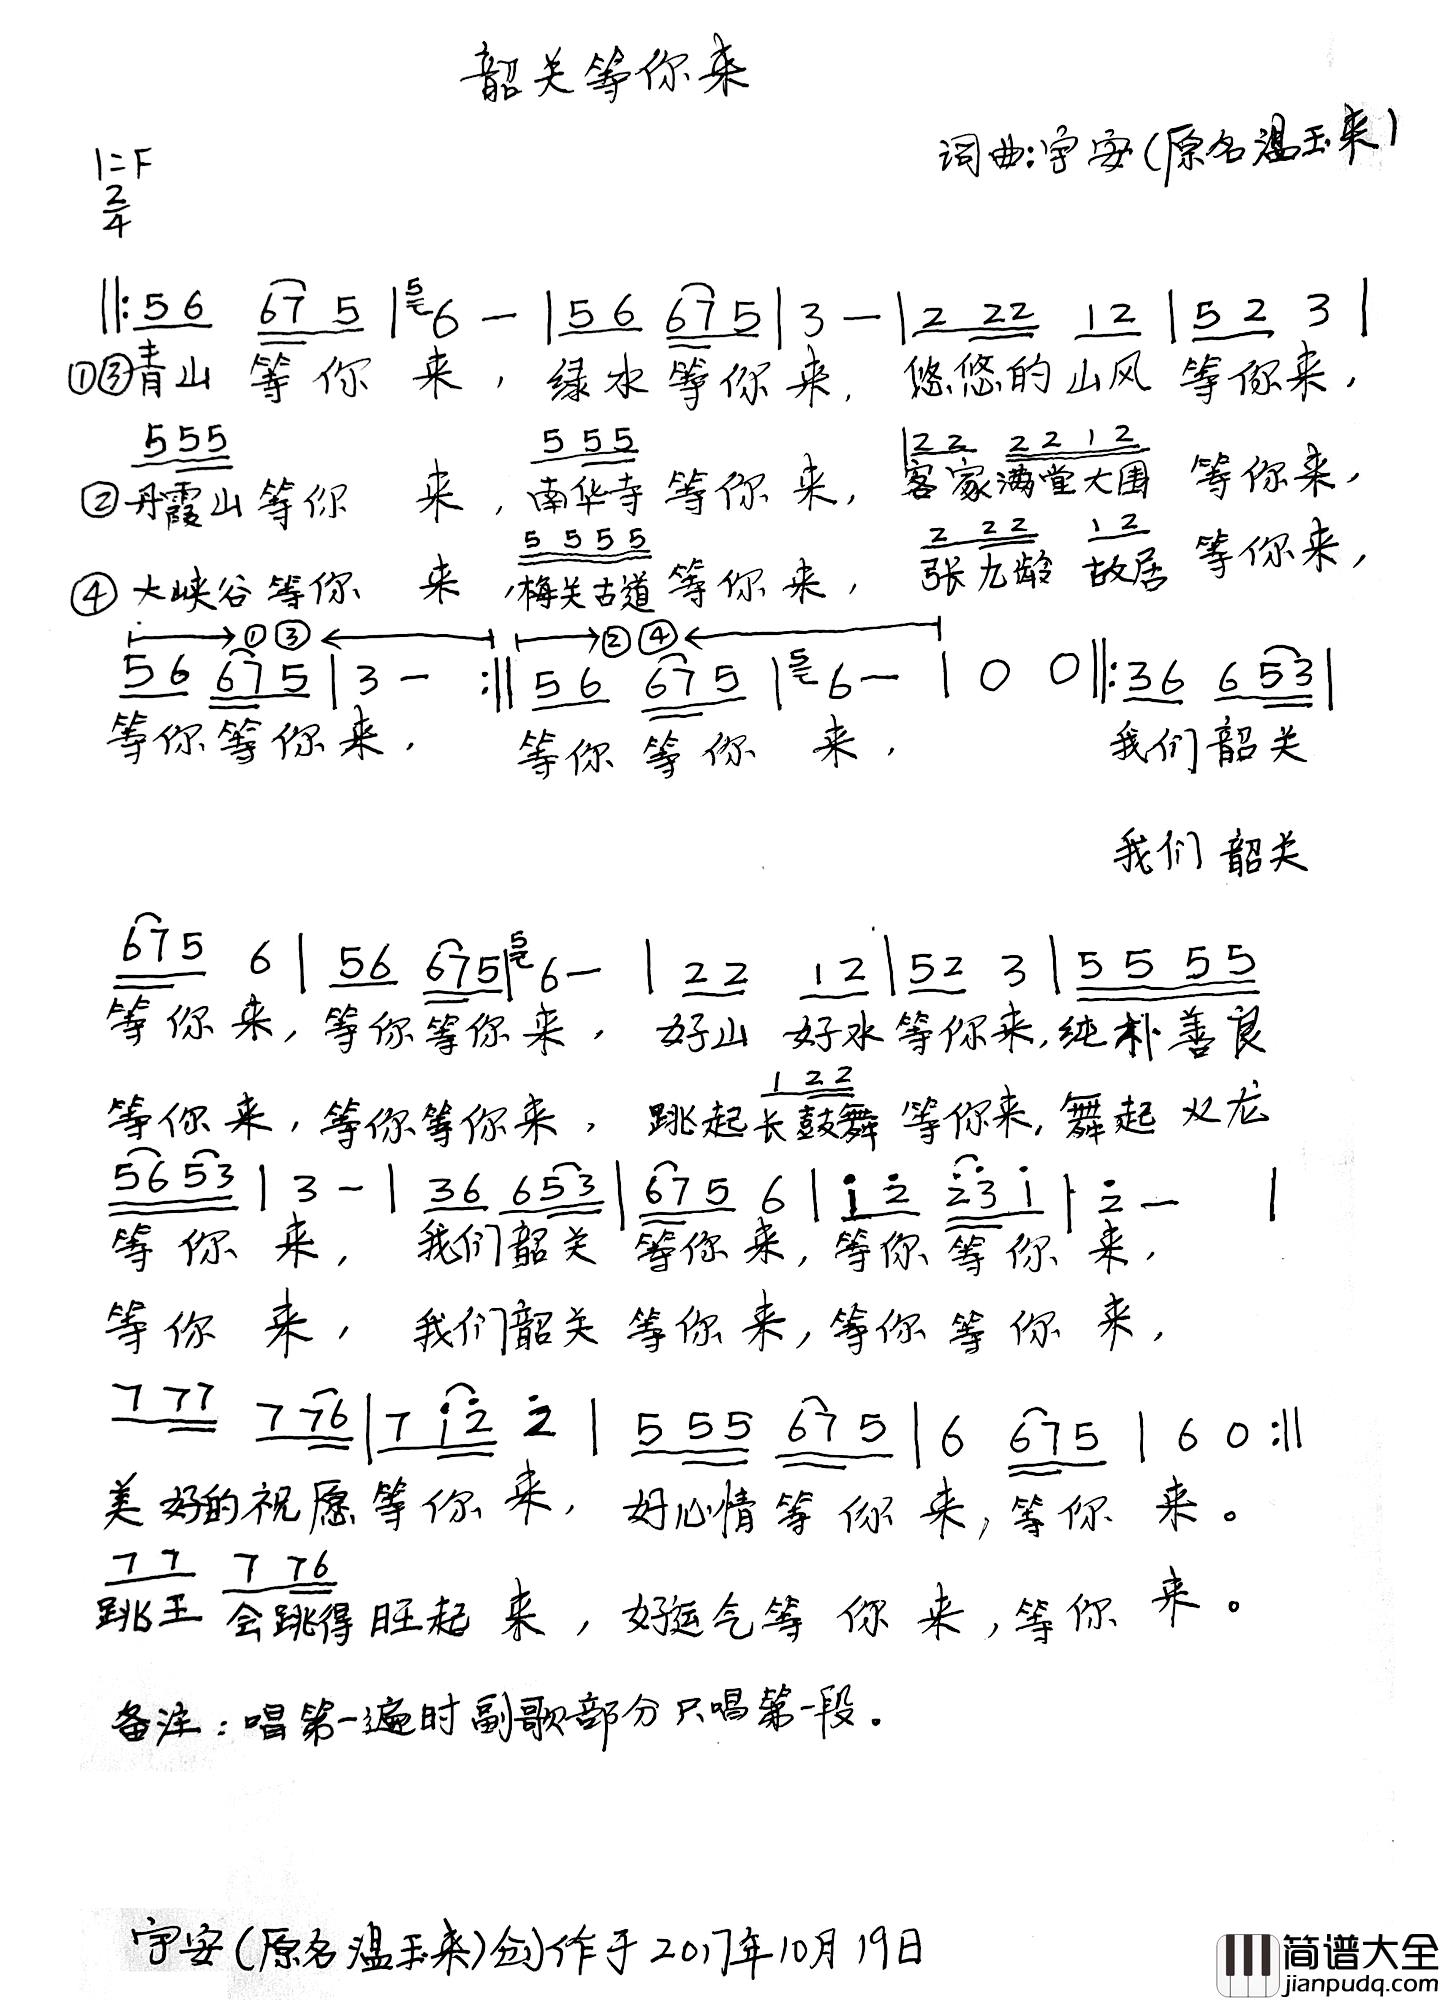 韶关等你来
词曲:宇安(原名温玉来)
1=F
2/4
||:56 67 5|5 6 -|56 67 5|3 -|2 22 12|52 3|
①③青山 等你 来, 绿水等你来, 悠悠的山风 等你来,
5 55 5 55 |22 2212
②丹霞山等你 来, 南华寺等你来, 客家满堂大围 等你来,
5555 2 22 12
④大峡谷等你 来, 梅关古道等你来, 张九龄 故居 等你来,
①③ ②④
56 67 5|3 - :||56 67 5|5 6 -|0 0||:36 653|
等你等你来, 等你 等你 来, 我们韶关
我们韶关
675 6|56 675|5 6 -|22 12|52 3|5555
等你来, 等你等你来, 好山 好水等你来, 纯朴善良
122
等你来, 等你等你来, 跳起长鼓舞 等你来, 舞起双龙
5653|3 -|36 653|675 6|i 2 23i|2 - |
等你来, 我们韶关 等你来, 等你等你来,
等你来, 我们韶关 等你来, 等你等你来,
7 77 7 76|7 i2 2|5 55 67 5|6 67 5|6 0:||
美好的祝愿等你来, 好心情等你来, 等你来。
77 7 76
跳王 会跳得旺起来, 好运气等你来, 等你来。
备注:唱第一遍时副歌部分只唱第一段。
宇安(原名温玉来)创作于2017年10月19日
简谱大全
jianpudq.com